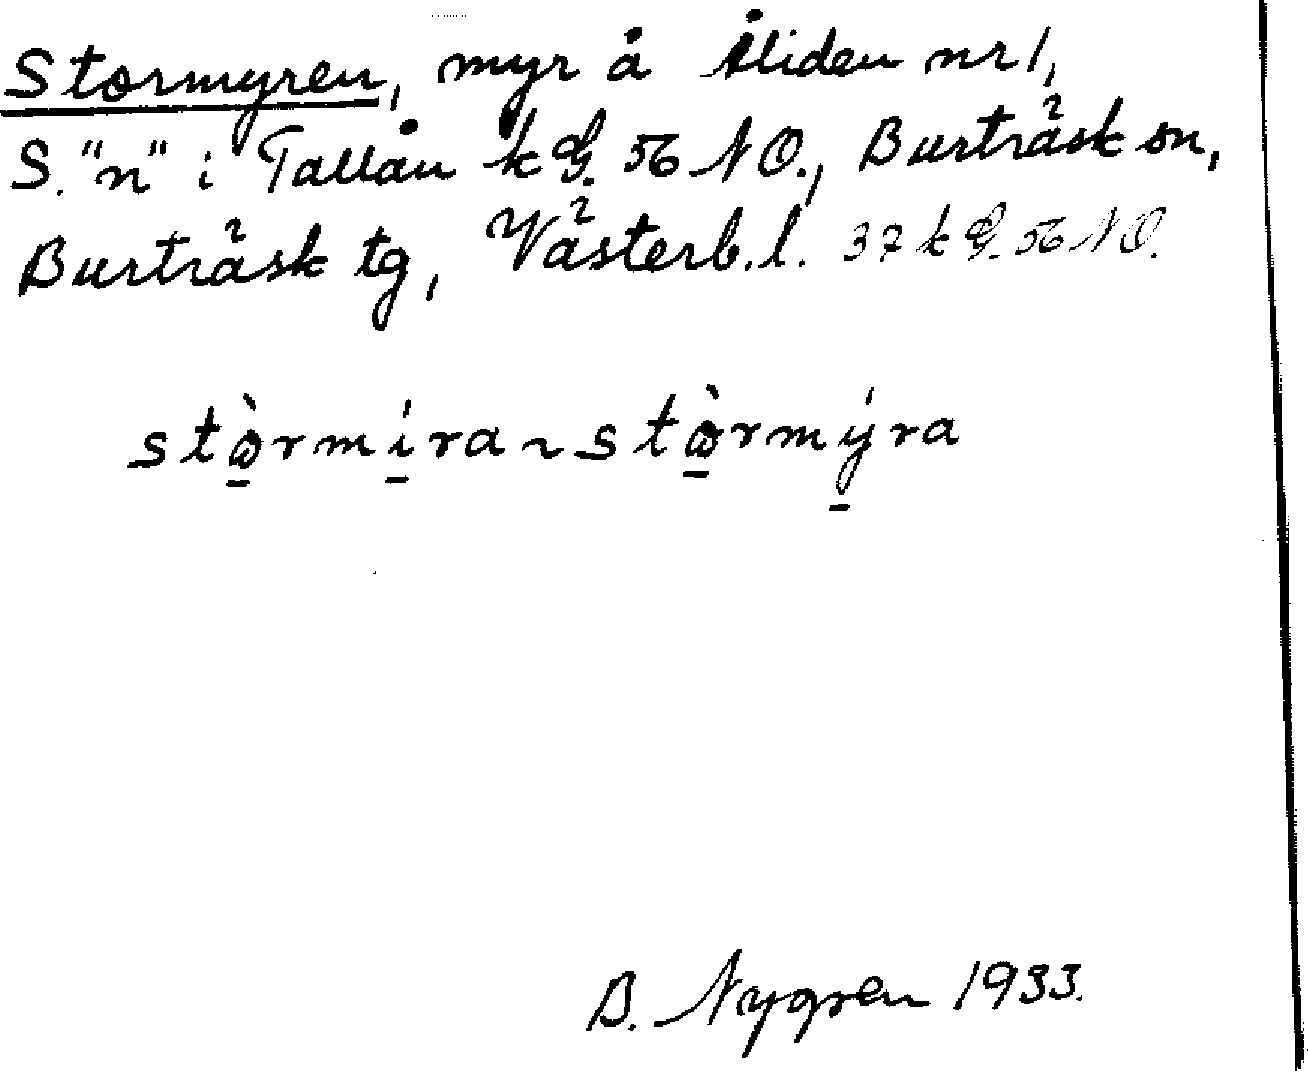 Stormyren, myr å Åliden nr 1,
S. "n" i Tallån k G. 56 NO., Burträsk sn,
Burträsk tg, Västerb. l. 37 k G. 56 NO.
stò̱rmí̱ra ~ stò̱rmý̱ra
B. Nygren 1933.